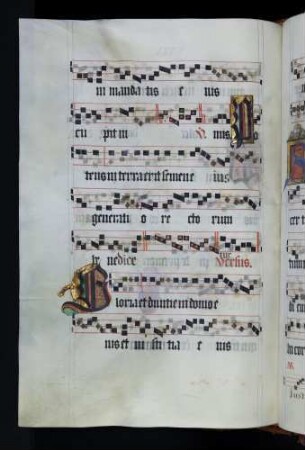 in manda tis e ius
cu pit ni mis P o
tens in terra erit semen e ius
generati o re cto rum
be nedice Versus.
G loria et diuitie in domo e
ius et iu sti tia e ius